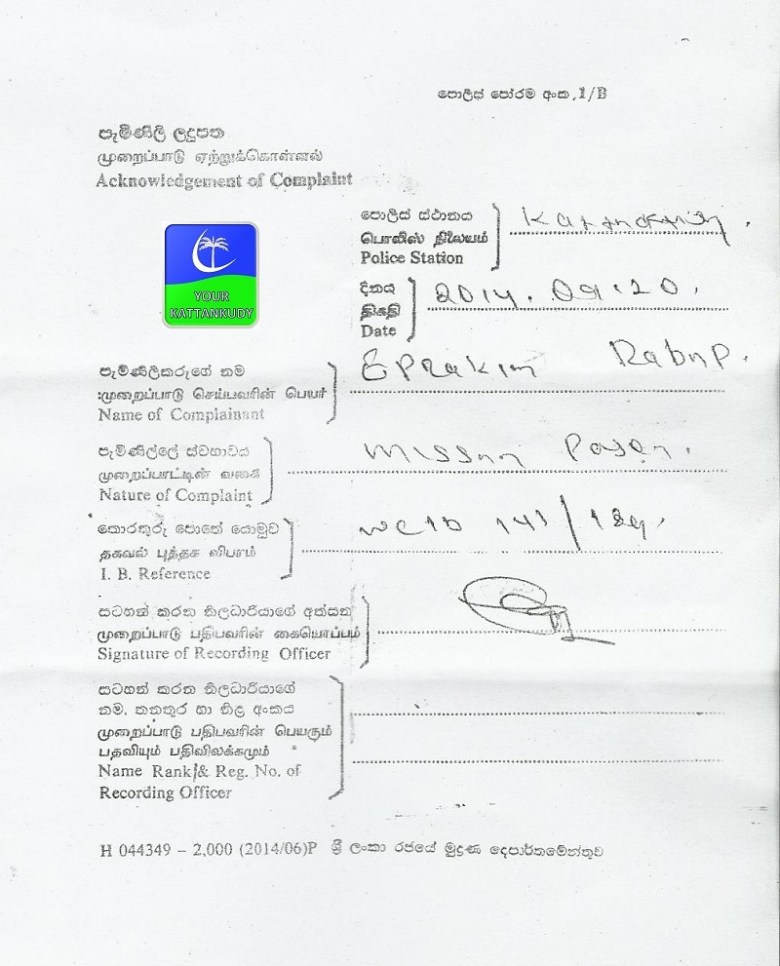 පොලිස් පෝරම අංක, 1/B
පැමිණිලි ලදුපත
முறைப்பாடு ஏற்றுக்கொள்ளல்
Acknowledgement of Complaint
පොලිස් ස්ථානය
பொலிஸ் நிலையம்
Police Station
YOUR
KATTANKUDY
දිනය
திகதி
Date
2014. 09.20.
පැමිණිලිකරුගේ නම
முறைப்பாடு செய்பவரின் பெயர்
Name of Complainant
පැමිණිල්ලේ ස්වභාවය
முறைப்பாட்டின் வகை
Nature of Complaint
තොරතුරු පොතේ යොමුව
தகவல் புத்தக விபரம்
I. B. Reference
සටහන් කරන නිලධාරියාගේ අත්සන
முறைப்பாடு பதிபவரின் கையொப்பம்
Signature of Recording Officer
සටහන් කරන නිලධාරියාගේ
නම, තනතුර හා නිළ අංකය
முறைப்பாடு பதிபவரின் பெயரும்
பதவியும் பதிவிலக்கமும்
Name Rank & Reg. No. of
Recording Officer
H 044349 – 2,000 (2014/06)P ශ්‍රී ලංකා රජයේ මුද්‍රණ දෙපාර්තමේන්තුව